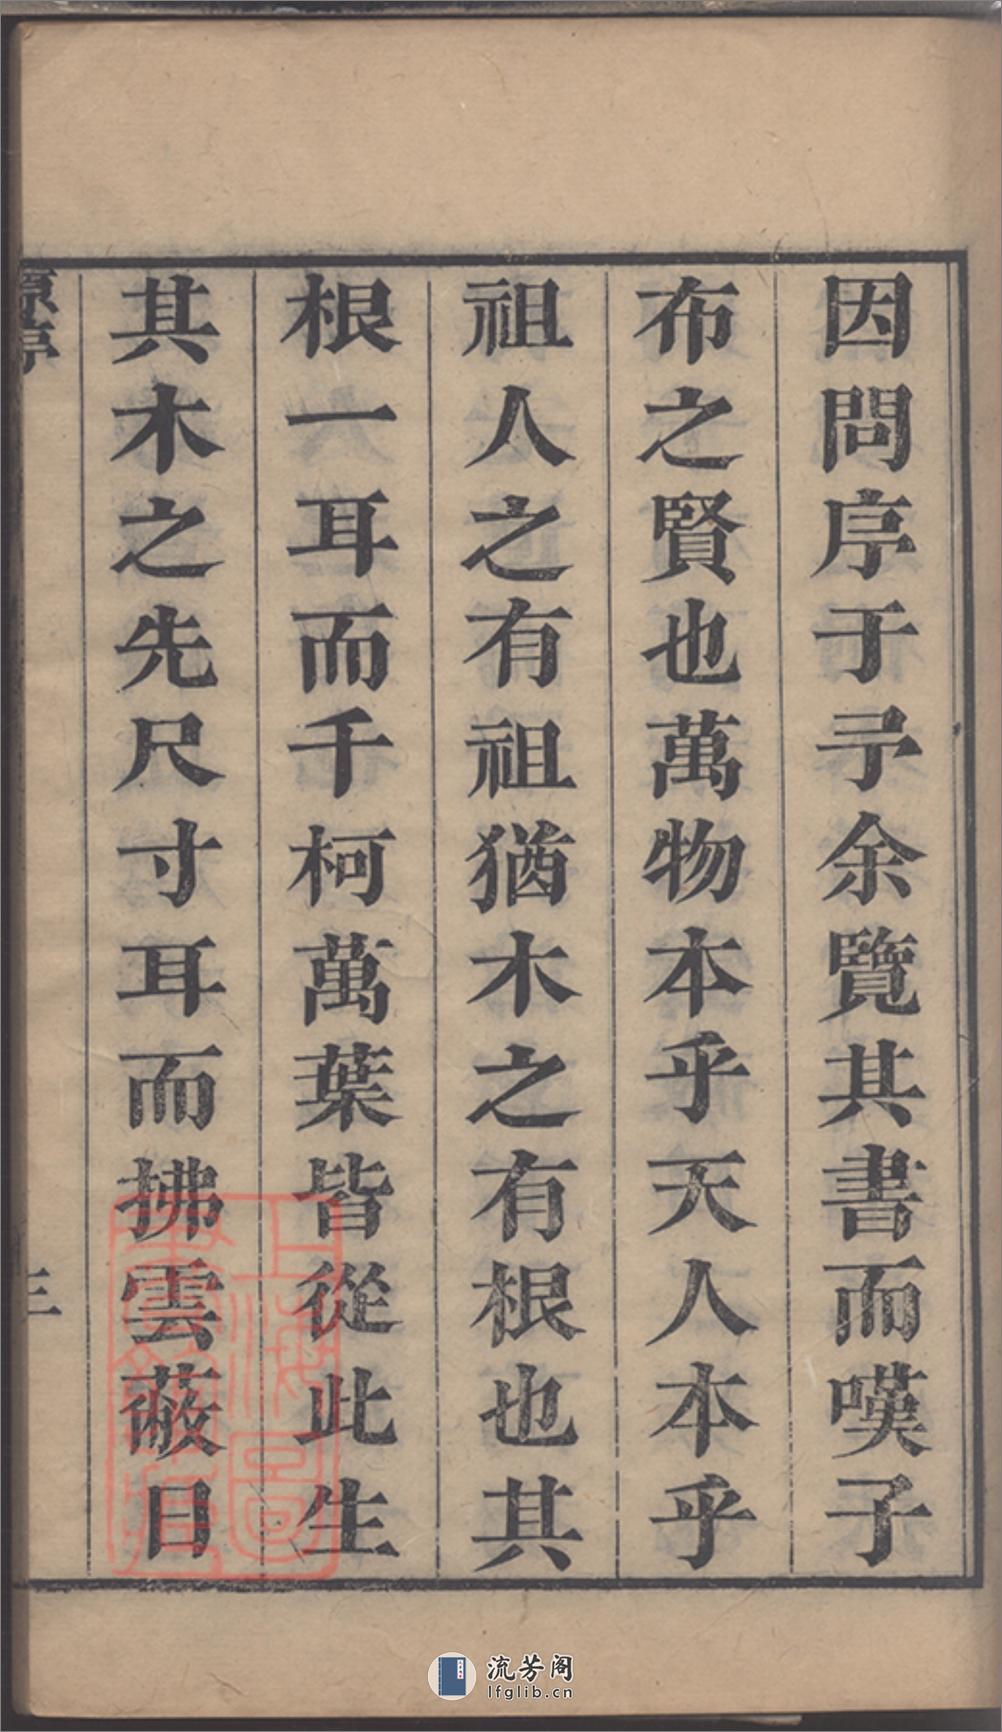 因問序于予余覽其書而嘆子
布之賢也萬物本乎天人本乎
祖人之有祖猶木之有根也其
根一耳而千柯萬葉皆從此生
其木之先尺寸耳而拂雲蔽日
原序
三
上海圖
書館藏
流芳阁
lfglib.cn